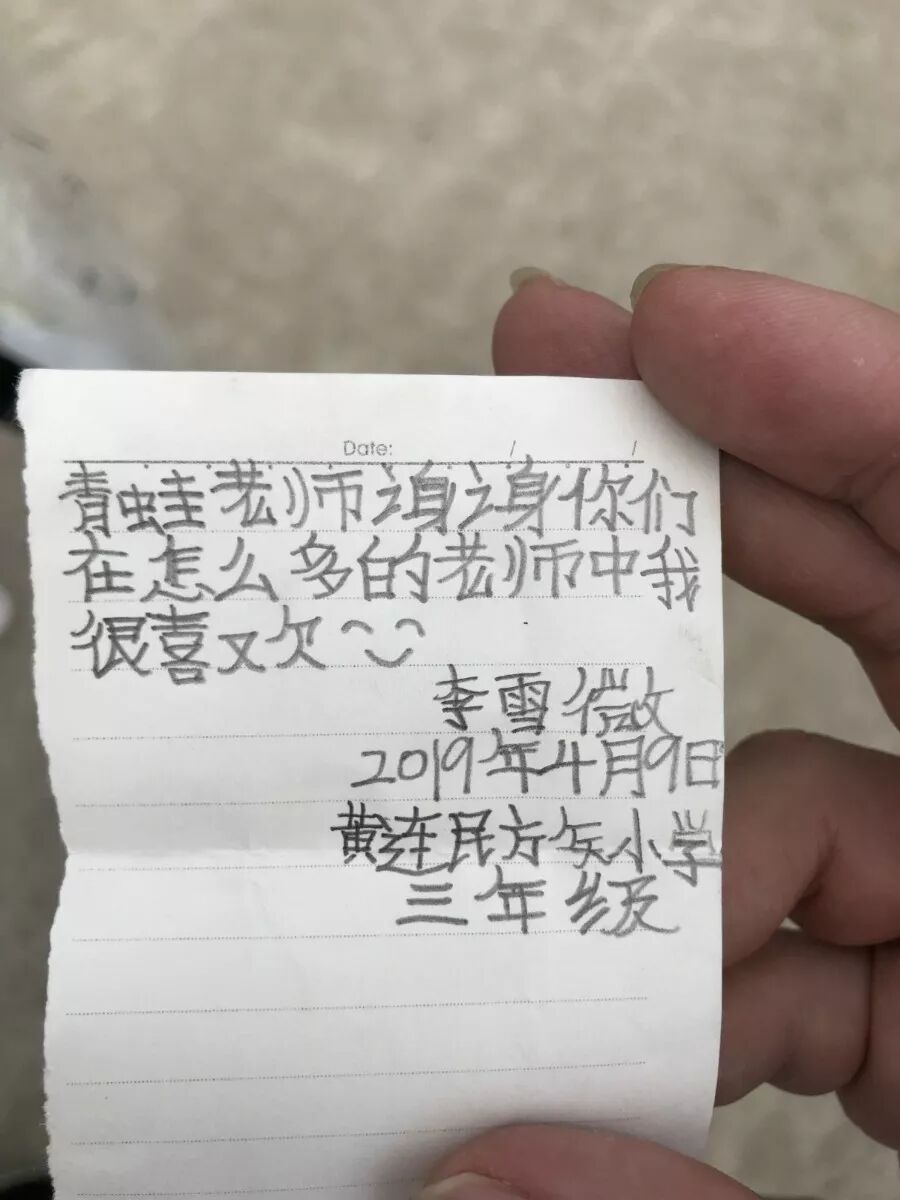 Date: / /
青蛙老师谢谢你们
在怎么多的老师中我
很喜欢
李雪微
2019年4月9日
黄连民方矢小学
三年级